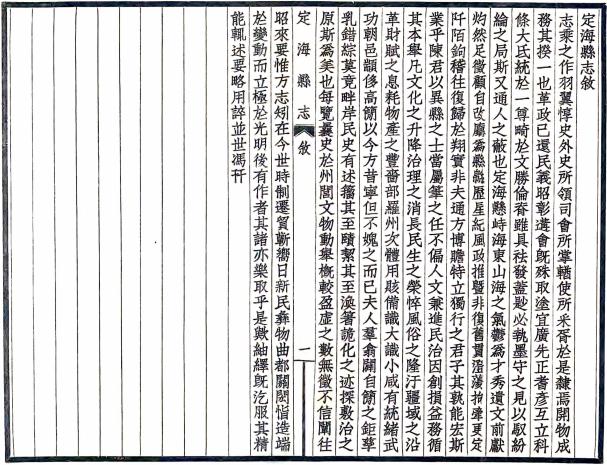 定海縣志敘
志乘之作羽翼惇史外史所領司會所掌輶使所釆胥於是隸焉開物成
務其揆一也革政已還民義昭彰遘會旣殊取塗宜廣先正耆彥互立科
條大氐統於一尊畸於文勝倫脊雖具袪發蓋尟必執墨守之見以馭紛
綸之局斯又通人之蔽也定海縣峙海東山海之氣鬱爲才秀遺文前獻
灼然足徵顧自改廳爲縣歷星紀風政推暨非復舊貫澹菭抬肇更定
阡陌鉤稽往復歸於翔實非夫通方博贍特立獨行之君子其孰能宏斯
業乎陳君以異縣之士當屬筆之任不偏人文兼進民治因創損益務循
其本舉凡文化之升降治理之消長民生之榮悴風俗之隆汙疆域之沿
革財賦之息耗物產之豐嗇部羅州次體用賅備識大識小咸有統緒武
功朝邑顓侈高簡以今方昔寧但不媿之而已夫人羣翕闢自簡之鉅孳
乳錯綜莫竟畔岸民史有述籀其至賾絜其至渙箸詭化之迹探敷治之
原斯爲美也每覽曩史於州閭文物動舉槪較盈虛之數無徵不信闡往
定海縣志 敘 一
昭來要惟方志矧在今世時制遷貿蘄嚮日新民彝物曲都關閎恉造端
於變動而立極於光明後有作者其諸亦樂取乎是歟紬繹旣汔服其精
能輒述要略用誶並世馮幵